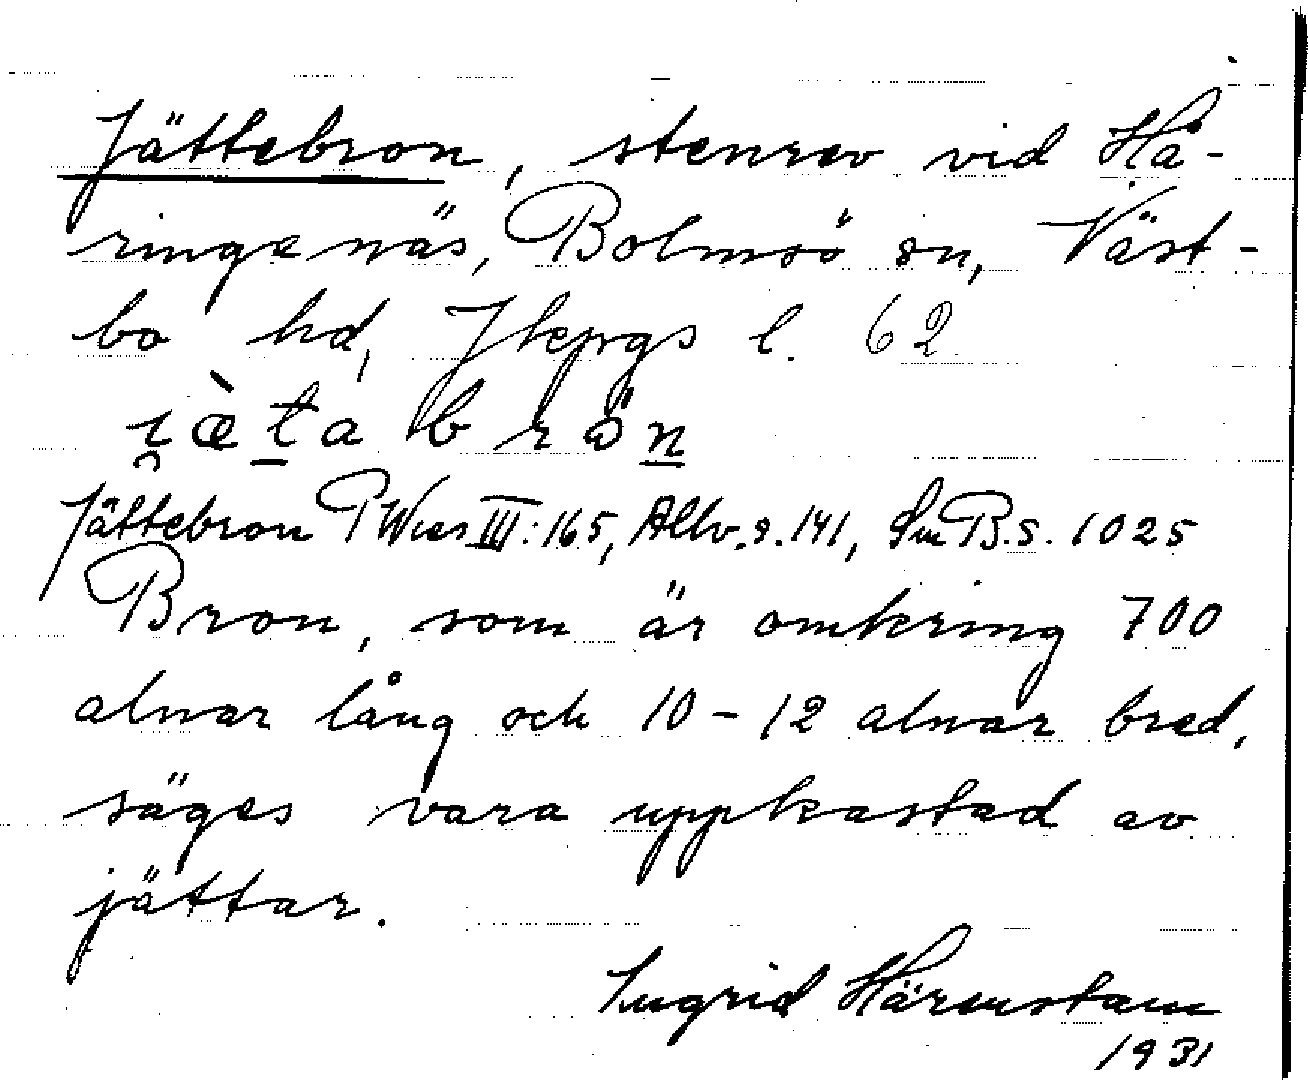 Jättebron, stenrev vid Hå-
ringe näs, Bolmsö sn, Väst-
bo hd, Jkpgs l. 62
i̯æ̀t̲a brön̲
Jättebron P Wies III: 165, Allv. s. 141, Sm B. s. 1025
Bron, som är omkring 700
alnar lång och 10-12 alnar bred,
säges vara uppkastad av
jättar.
Ingrid Härenstam
1931